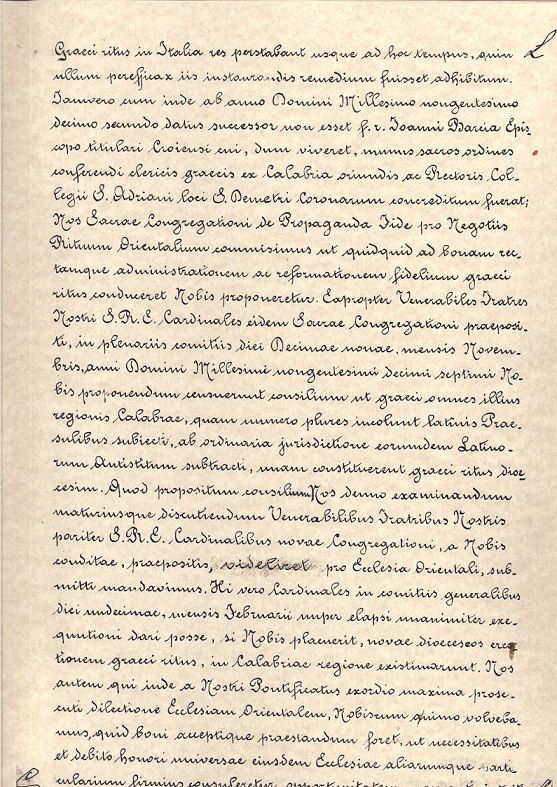 Graeci ritus in Italia res perstabant usque ad hoc tempus, quin
ullum perefficax iis instaurandis remedium fuisset adhibitum.
Ianvero cum inde ab anno Domini Millesimo nongentesimo
decimo secundo datus successor non esset f. r. Ioanni Barcia Epis-
copo titulari Croiensi cui, dum viveret, munus sacros ordines
conferendi clericis graecis ex Calabria oriundis ac Rectoris Col-
legii S. Adriani loci S. Demetri Coronarum concreditum fuerat;
Nos Sacrae Congregationi de Propaganda Fide pro Negotiis
Rituum Orientalium commisimus ut quidquid ad bonam rec-
tamque administrationem ac reformationem fidelium graeci
ritus conduceret Nobis proponeretur. Eapropter Venerabiles Fratres
Nostri S. R. E. Cardinales eidem Sacrae Congregationi praeposi-
ti, in plenariis comitiis diei Decimae nonae, mensis Novem-
bris, anni Domini Millesimi nongentesimi decimi septimi No-
bis proponendum censuerunt consilium ut graeci omnes illius
regionis Calabrae, quam numero plures incolunt latinis Prae-
sulibus subiecti, ab ordinaria jurisdictione eorumdem Latino-
rum Antistitum subtracti, unam constituerent graeci ritus dioe-
cesim. Quod propositum consilium Nos denuo examinandum
maturiusque discutiendum Venerabilibus Fratribus Nostris
pariter S. R. E. Cardinalibus novae Congregationi, a Nobis
conditae, praepositis, videlicet pro Ecclesia Orientali, sub-
mitti mandavimus. Hi vero Cardinales in comitiis generalibus
diei undecimae, mensis Februarii nuper elapsi unanimiter exe-
qutioni dari posse, si Nobis placuerit, novae dioeceseos erec-
tionem graeci ritus, in Calabriae regione existimarunt. Nos
autem qui inde a Nostri Pontificatus exordio maxima prose-
cuti dilectione Ecclesiam Orientalem, Nobiscum quimo volveba-
mus, quid boni acceptique praestandum foret, ut necessitatibus
et debito honori universae eiusdem Ecclesiae aliarumque parti-
cularium firmius consuleretur,